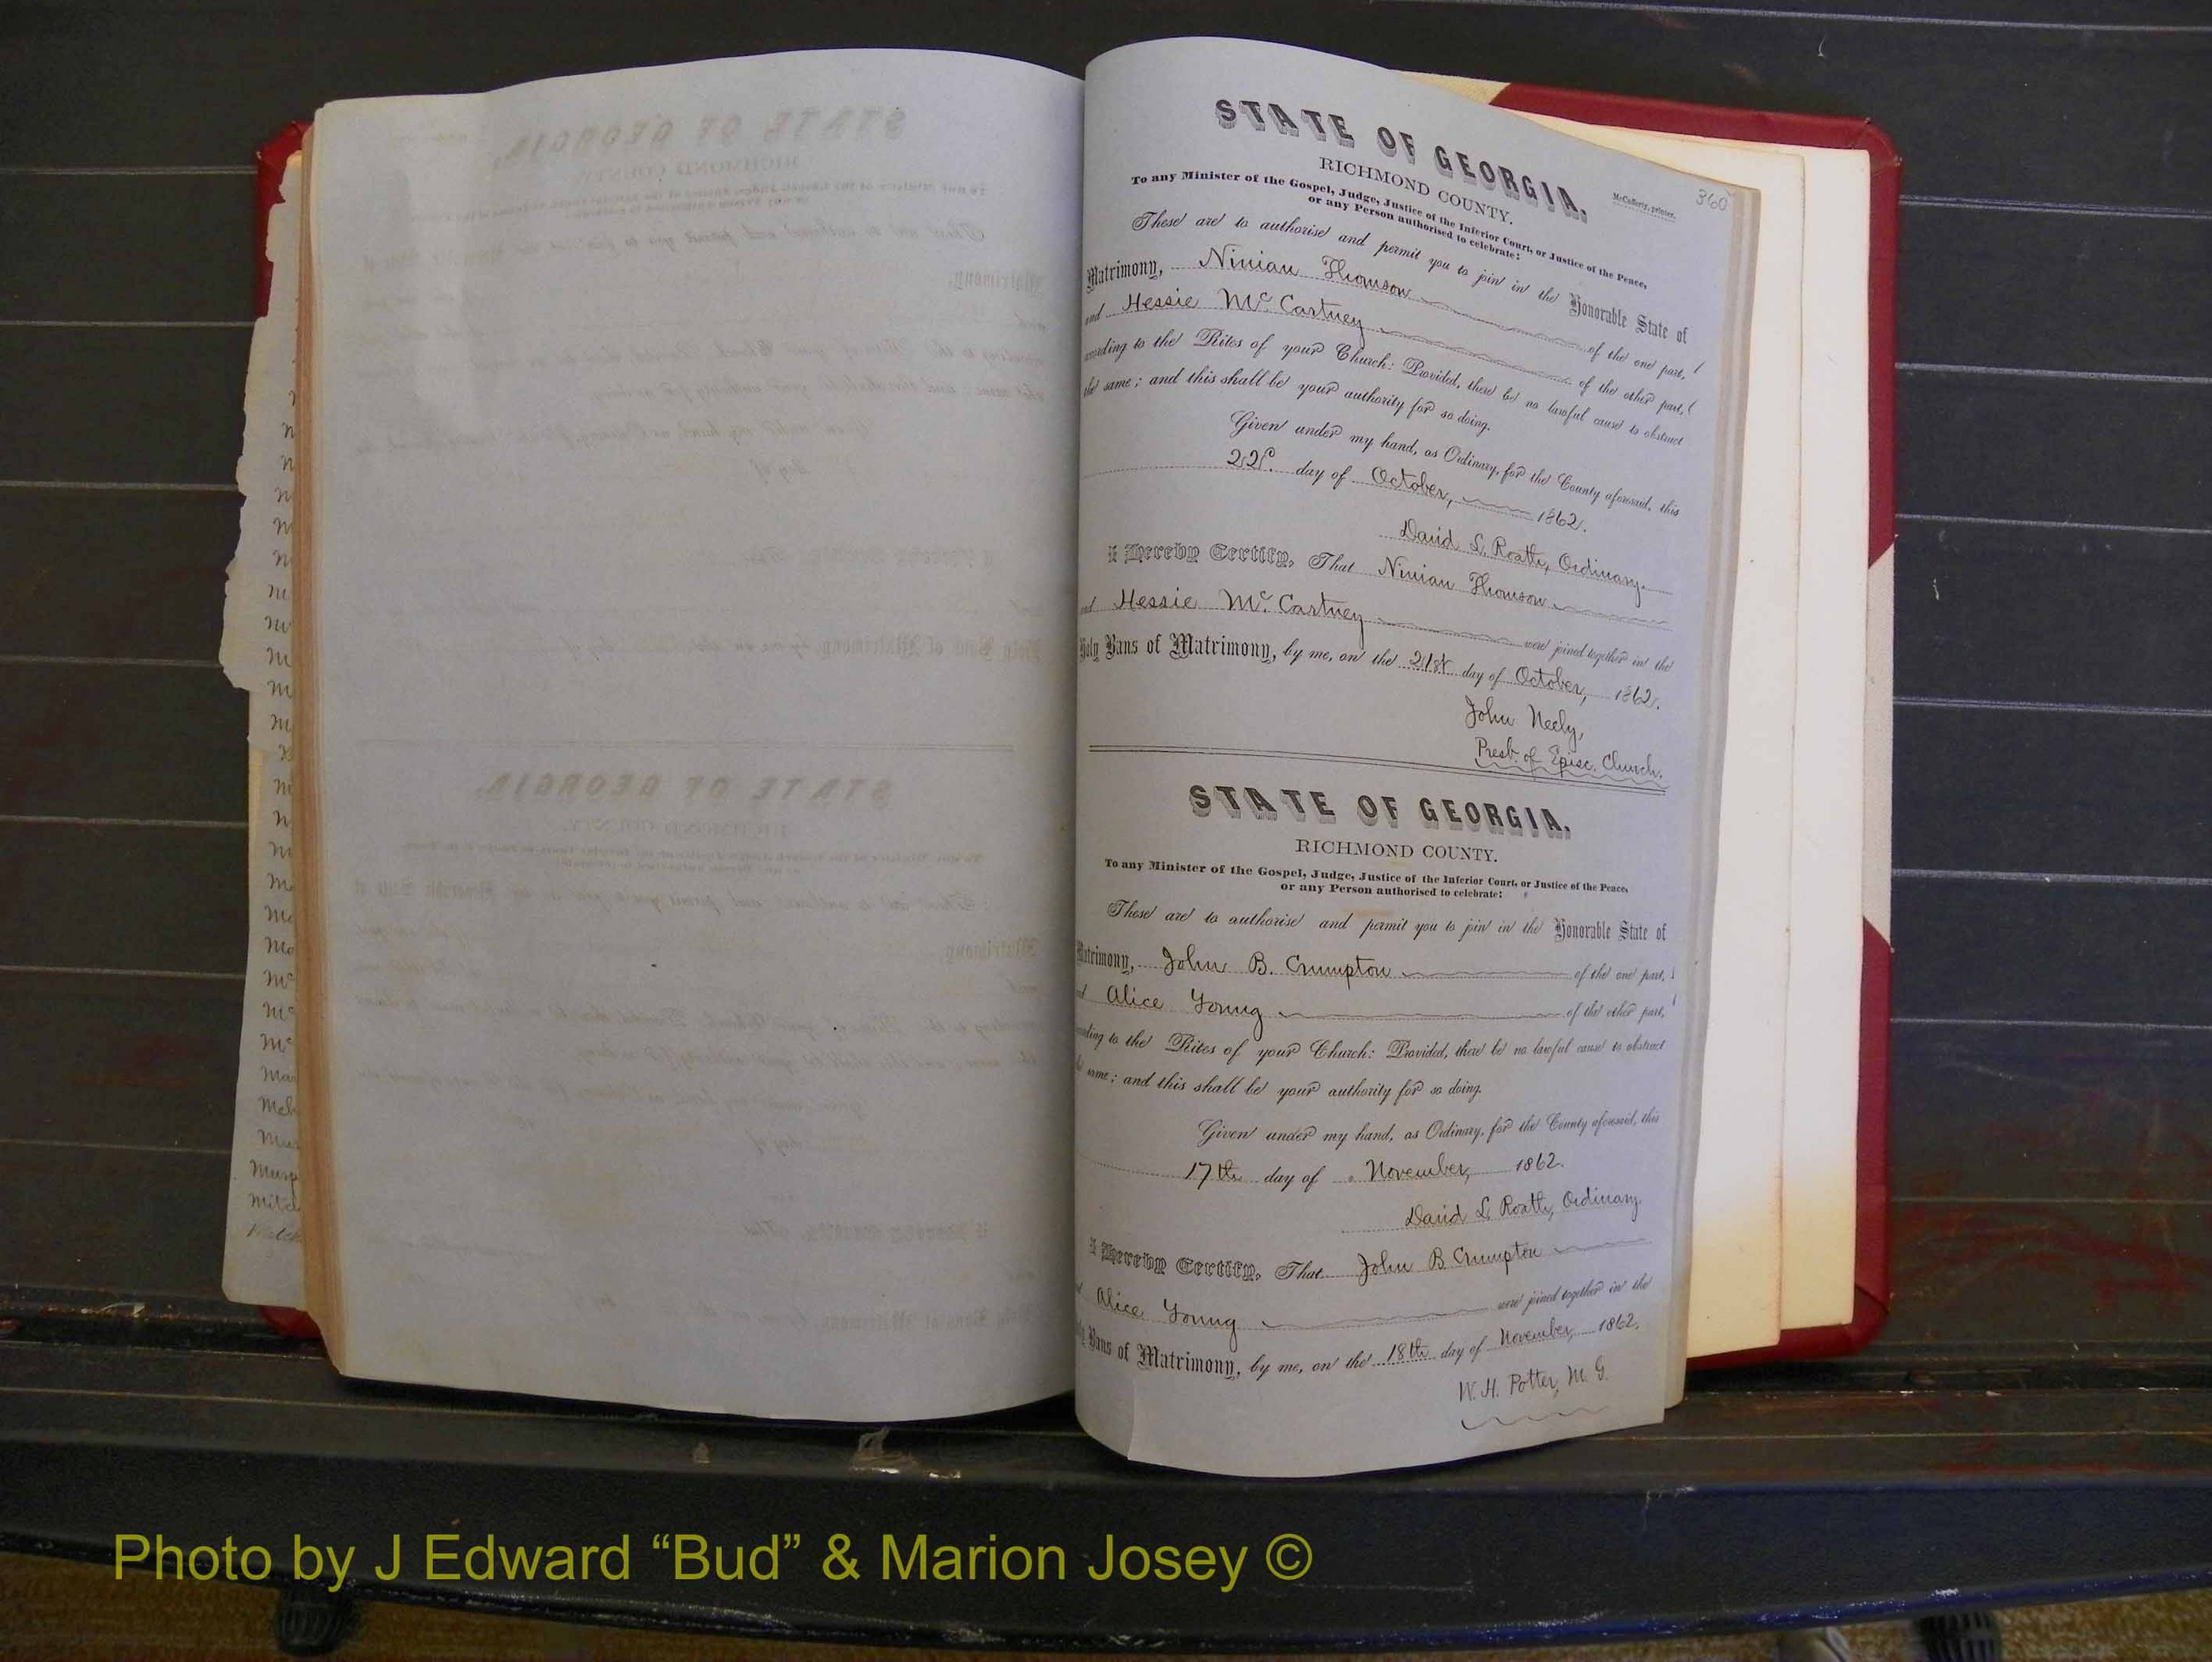 360
McCafferty, printer.
STATE OF GEORGIA.
RICHMOND COUNTY.
To any Minister of the Gospel, Judge, Justice of the Inferior Court, or Justice of the Peace,
or any Person authorised to celebrate:
These are to authorise and permit you to join in the Honorable State of
Matrimony, Ninian Thomson of the one part,
and Hessie Mc. Cartney of the other part,
according to the Rites of your Church: Provided, there be no lawful cause to obstruct
the same; and this shall be your authority for so doing.
Given under my hand, as Ordinary, for the County aforesaid, this
22d. day of October, 1862.
David L. Roath, Ordinary.
I Hereby Certify, That Ninian Thomson
and Hessie Mc. Cartney were joined together in the
Holy Bans of Matrimony, by me, on the 21st day of October, 1862.
John Neely,
Presb. of Episc. Church.
STATE OF GEORGIA.
RICHMOND COUNTY.
To any Minister of the Gospel, Judge, Justice of the Inferior Court, or Justice of the Peace,
or any Person authorised to celebrate:
These are to authorise and permit you to join in the Honorable State of
Matrimony, John B. Crumpton of the one part,
and Alice Young of the other part,
according to the Rites of your Church: Provided, there be no lawful cause to obstruct
the same; and this shall be your authority for so doing.
Given under my hand, as Ordinary, for the County aforesaid, this
17th day of November, 1862.
David L. Roath, Ordinary.
I Hereby Certify, That John B Crumpton
Alice Young were joined together in the
Bans of Matrimony, by me, on the 18th day of November, 1862.
W. H. Potter, M. G.
Photo by J Edward “Bud” & Marion Josey ©